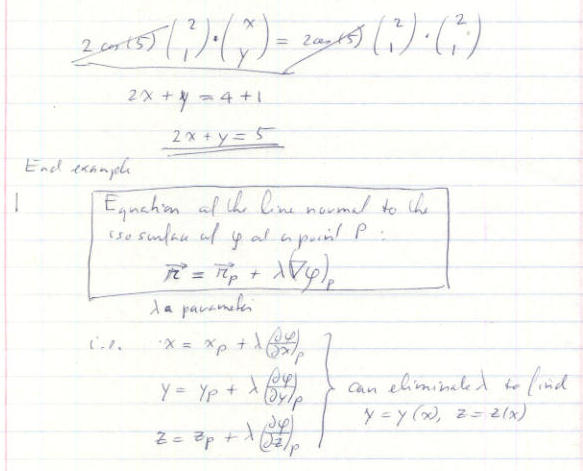 2 cos(5) (2 1) · (x y) = 2 cos(5) (2 1) · (2 1)
2x + y = 4 + 1
2x + y = 5
End example
Equation of the line normal to the
isosurface of φ at a point P :
r⃗ = r⃗_P + λ(∇φ)_P
λ a parameter
i.e. x = x_P + λ(∂φ/∂x)_P
y = y_P + λ(∂φ/∂y)_P
z = z_P + λ(∂φ/∂z)_P
can eliminate λ to find
y = y(x), z = z(x)